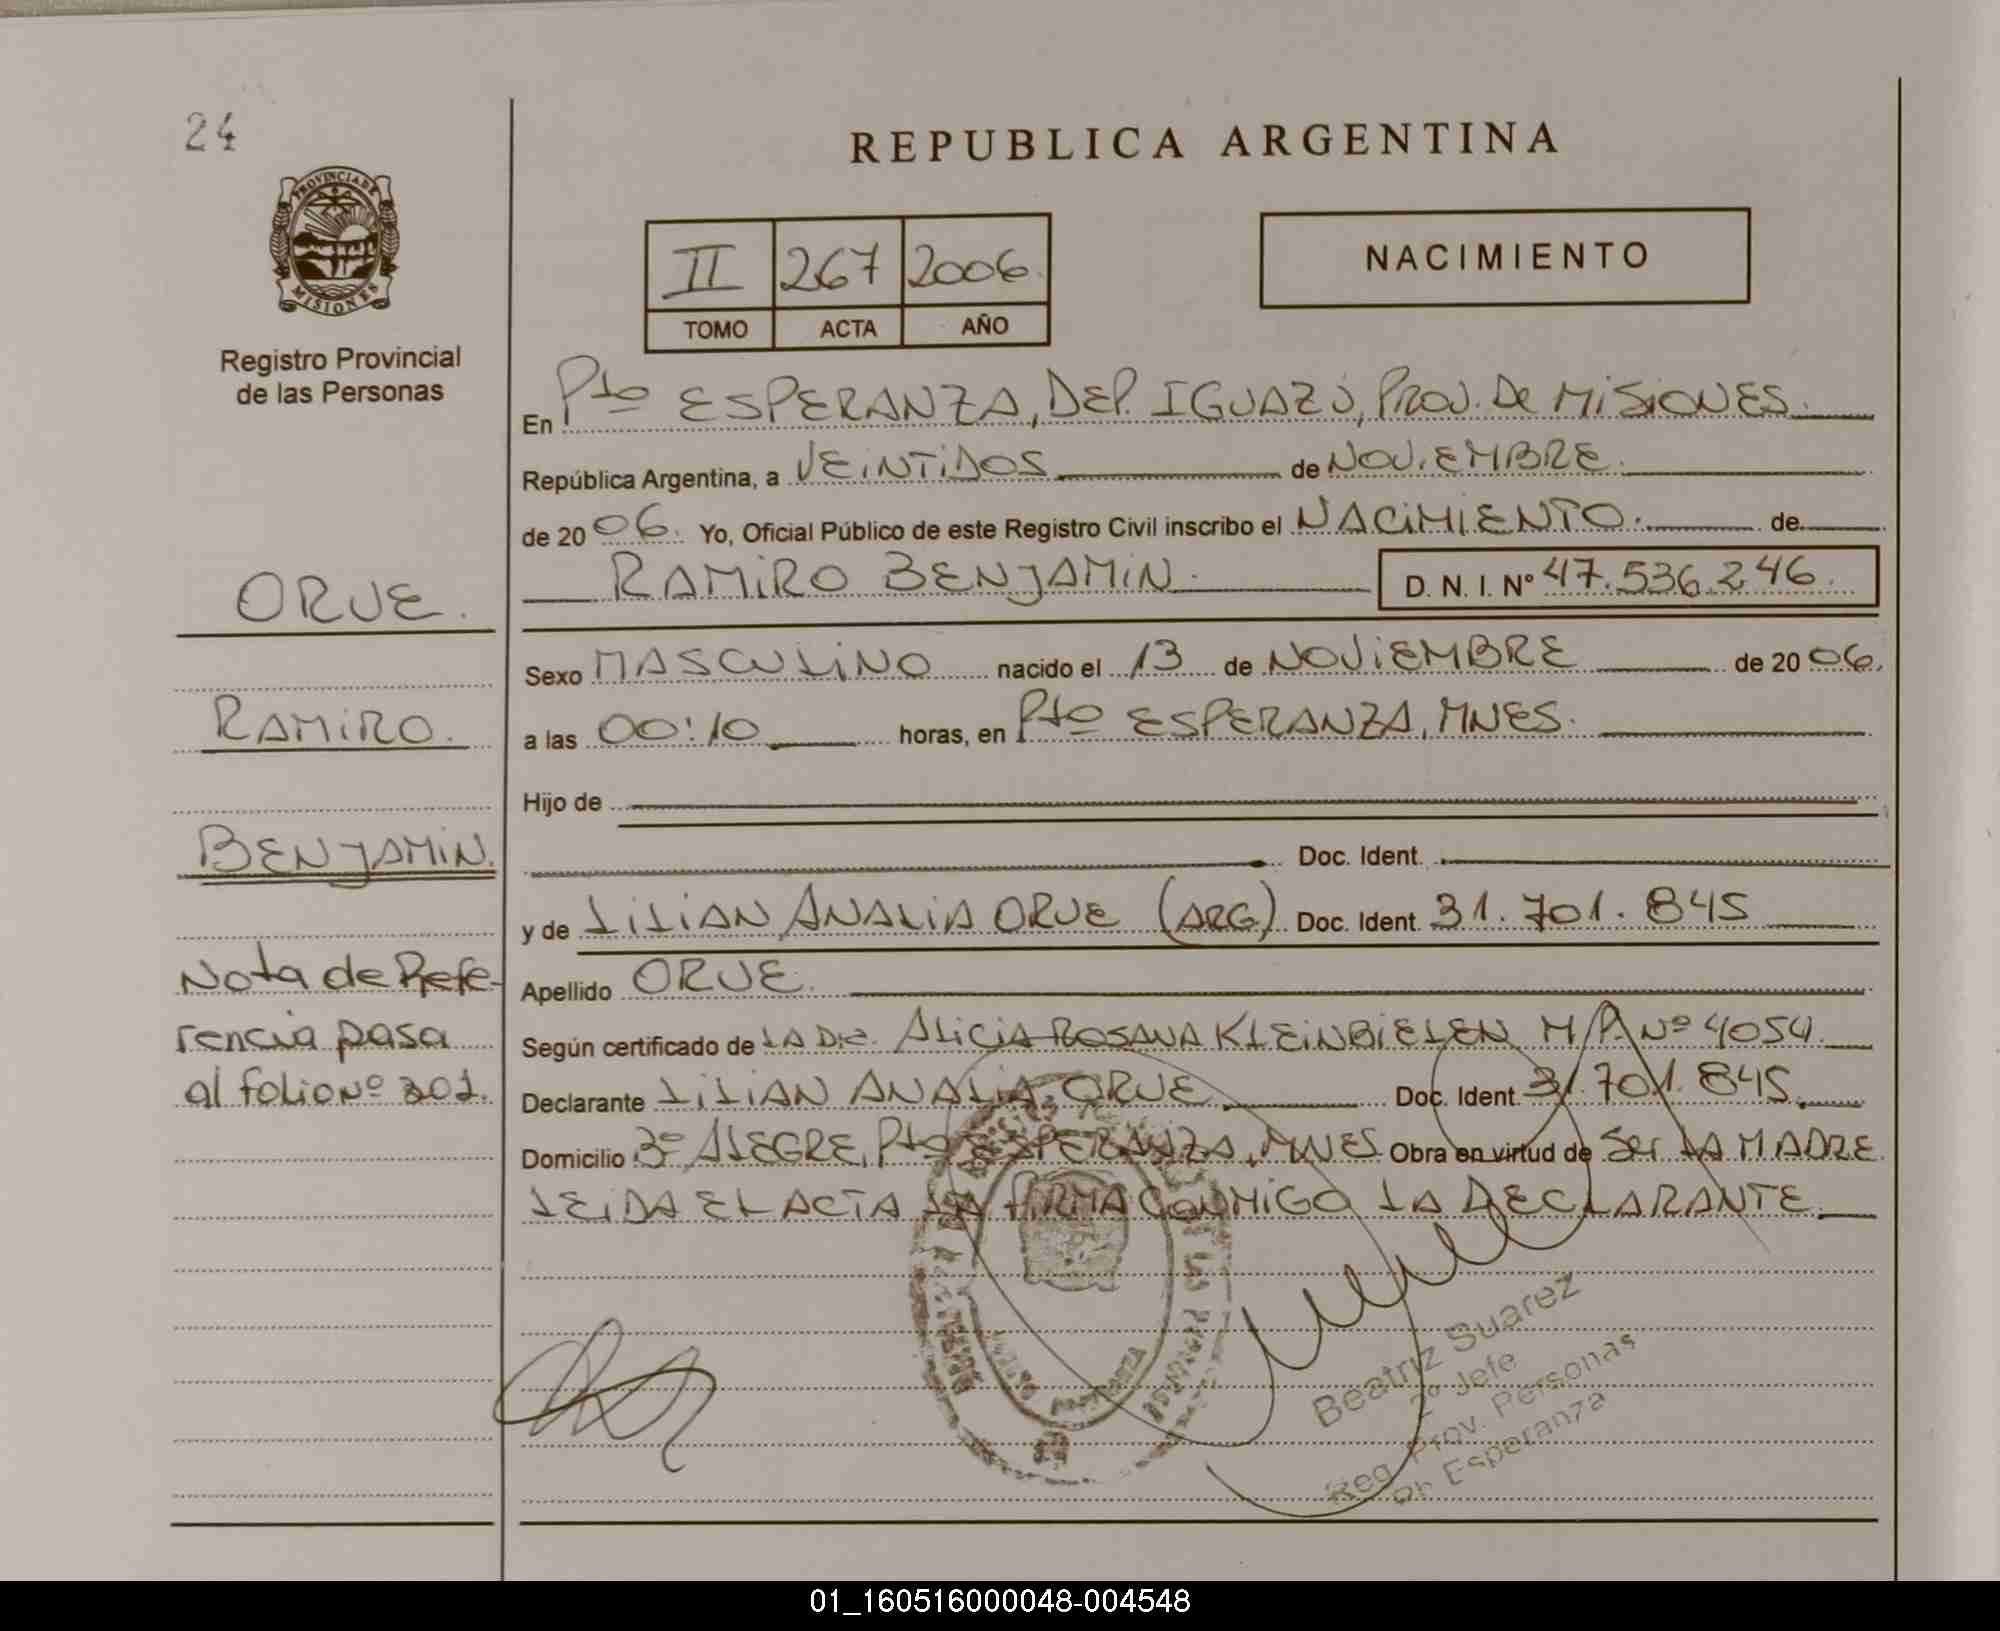 24
REPUBLICA ARGENTINA
PROVINCIA DE
MISIONES
Registro Provincial
de las Personas
II 267 2006
TOMO ACTA AÑO
NACIMIENTO
En Pto ESPERANZA, DEP. IGUAZÚ, PROV. De MiSiONES.
República Argentina, a VEiNTiDOS de NOViEMBRE.
de 20 06. Yo, Oficial Público de este Registro Civil inscribo el NACiMIENTO. de
RAMiRO BENJAMiN. D. N. I. Nº 47.536.246.
ORUE.
RAMiRO.
BENJAMiN.
Sexo MASCULiNO nacido el 13 de NOViEMBRE de 20 06.
a las 00:10 horas, en Pto ESPERANZA, MNES.
Hijo de
Doc. Ident.
y de LiLiAN ANALiA ORUE (ARG) Doc. Ident. 31.701.845
Apellido ORUE.
Según certificado de LA DRA. ALiCiA ROSANA KLEiNBiELEN M.P. Nº 4054.
Declarante LiLiAN ANALiA ORUE Doc. Ident. 31.701.845.
Domicilio Bº ALEGRE, Pto ESPERANZA, MNES Obra en virtud de Ser LA MADRE
LEiDA EL ACTA LA FiRMA CONMiGO LA DECLARANTE.
Nota de Refe-
rencia pasa
al folio Nº 301.
Beatriz Suarez
2º Jefe
Reg. Prov. Personas
Esperanza
01_160516000048-004548